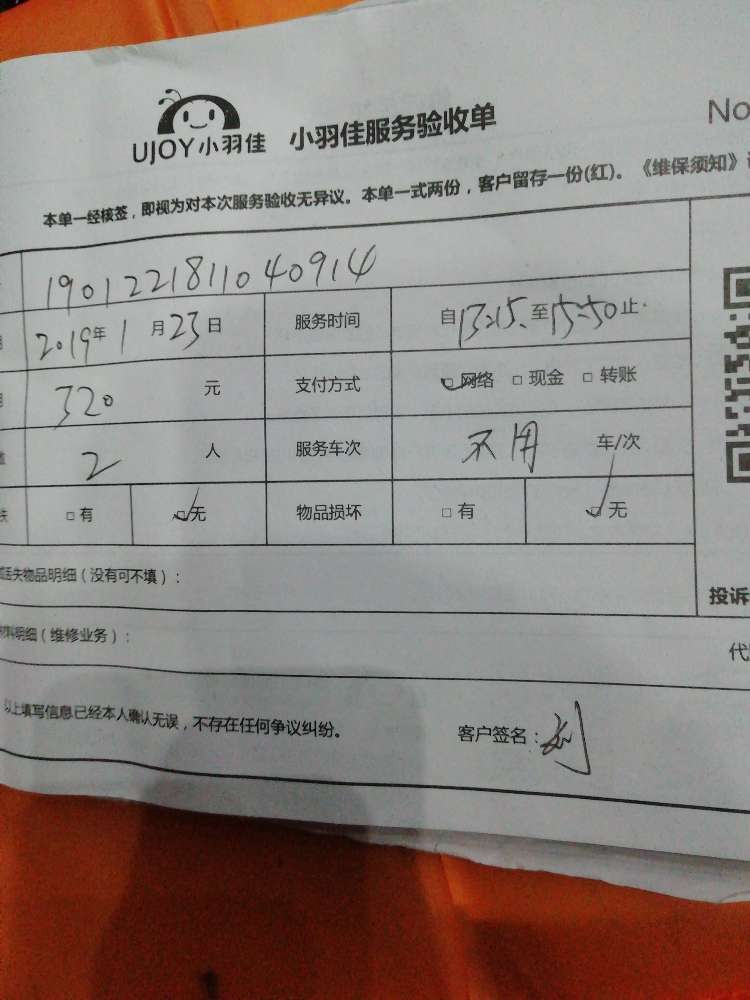 UJOY小羽佳 小羽佳服务验收单 No
本单一经核签，即视为对本次服务验收无异议。本单一式两份，客户留存一份(红)。《维保须知》
1901221811040914
2019年1月23日 服务时间 自13:15.至15:50止.
320 元 支付方式 □网络 □现金 □转账
2 人 服务车次 不用 车/次
□有 □无 物品损坏 □有 □无
丢失物品明细（没有可不填）：
投诉
料明细（维修业务）：
以上填写信息已经本人确认无误，不存在任何争议纠纷。
客户签名：刘